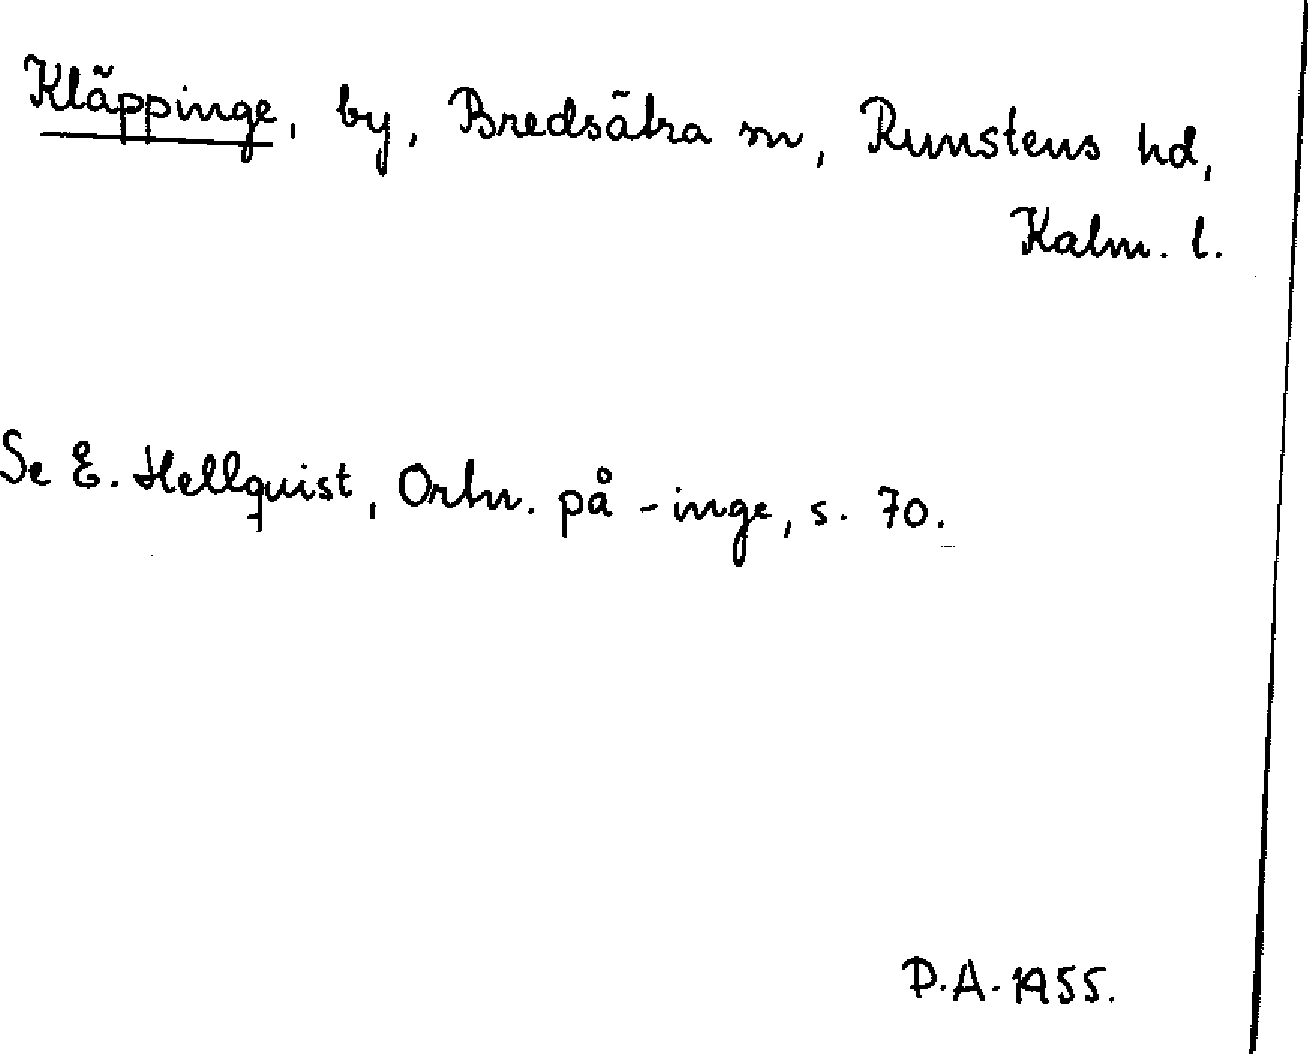 Kläppinge, by, Bredsätra sn, Runstens hd,
Kalm. l.
Se E. Hellquist, Ortn. på -inge, s. 70.
D.A. 1955.